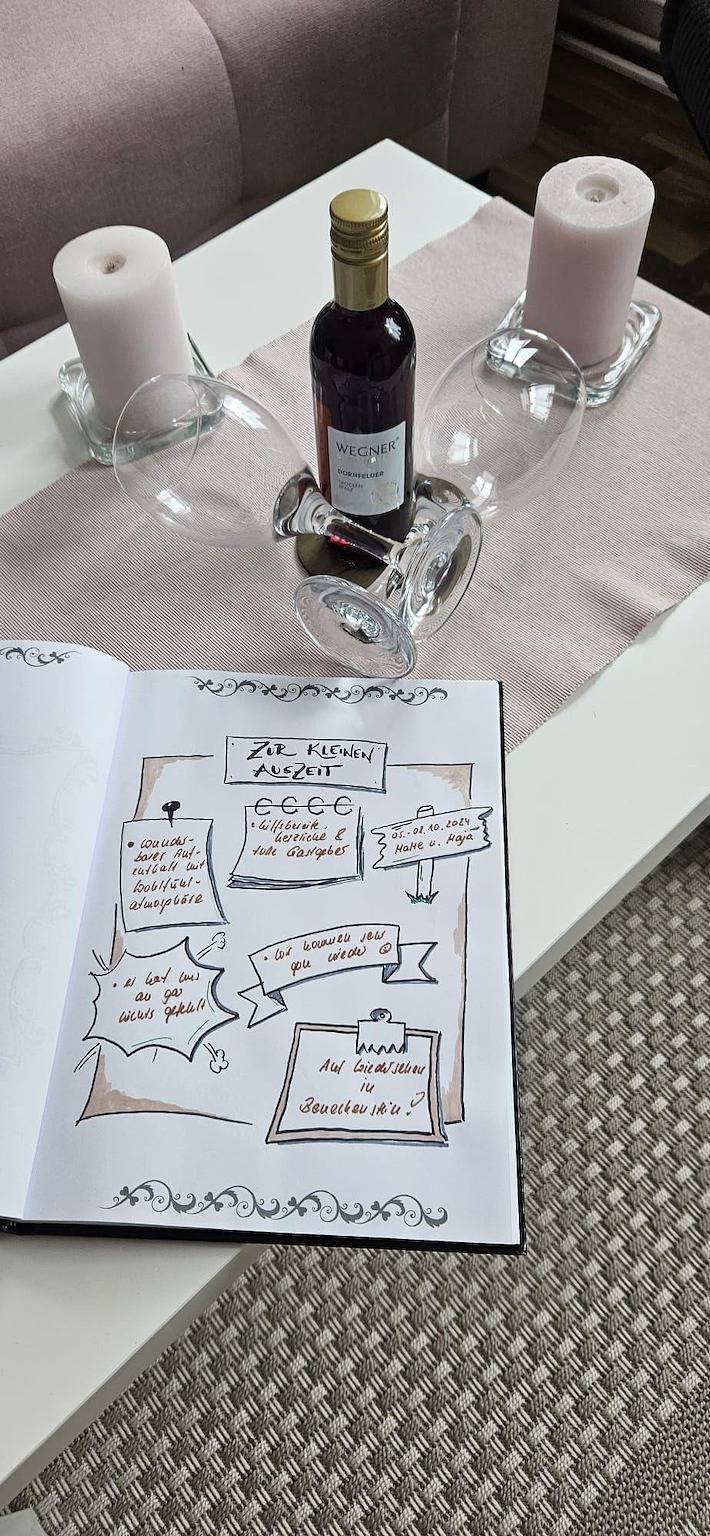 WEGNER
DORNFELDER
TROCKEN
PFALZ
ZUR KLEINEN
AUSZEIT
• wunder-
barer Auf-
enthalt mit
Wohlfühl-
atmosphäre
• hilfsbereite,
herzliche &
tolle Gastgeber
05.-08.10.2024
Malte u. Maja
• es hat uns
an gar
nichts gefehlt
• wir kommen sehr
gern wieder ☺
Auf Wiedersehen
in
Benneckenstein!